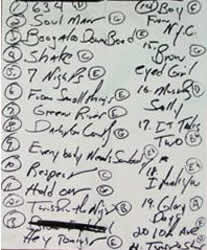 ① 634 Ⓔ
② Soul Man Ⓖ
③ Boogaloo Down Broad
④ Shake Ⓒ
⑤ 7 Nights Ⓔ
⑥ From Small things
⑦ Green River Ⓔ
⑧ Darlington County
⑨ Everybody Needs Somebody
⑩ Respect Ⓒ
⑪ Hold on
Twist the Night
Hey Tonight Ⓔ
⑭ Boy Ⓔ
From
N.Y.C.
15. Brown
eyed Girl
16. Mustang
Sally
17. IT Takes
Two
18.
I thank you
19. Glory
Days
20 10th AVE.